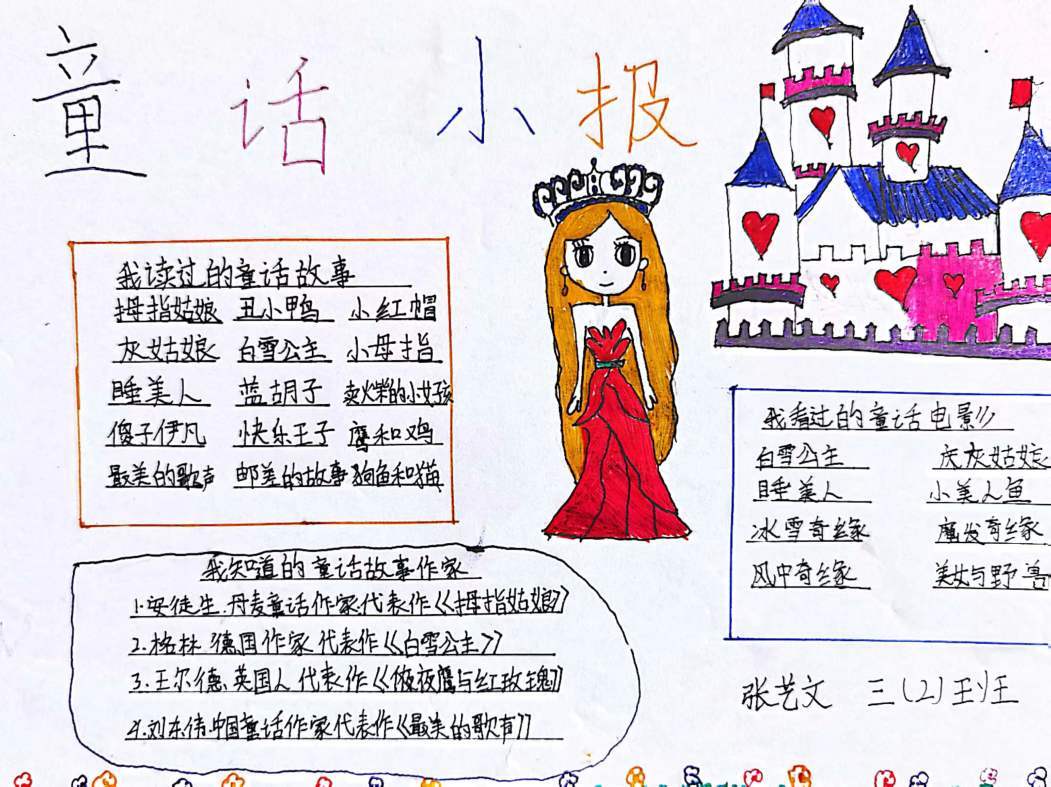 童话小报
我读过的童话故事
拇指姑娘 丑小鸭 小红帽
灰姑娘 白雪公主 小母指
睡美人 蓝胡子 卖火柴的小女孩
傻子伊凡 快乐王子 鹰和鸡
最美的歌声 邮差的故事 狗鱼和猫
我知道的童话故事作家
1.安徒生.丹麦童话作家代表作《拇指姑娘》
2.格林.德国作家代表作《白雪公主》
3.王尔德.英国人代表作《夜鹰与红玫瑰》
4.刘东伟中国童话作家代表作《最美的歌声》
我看过的童话电影
白雪公主 灰姑娘
睡美人 小美人鱼
冰雪奇缘 魔发奇缘
风中奇缘 美女与野兽
张艺文 三(2)班